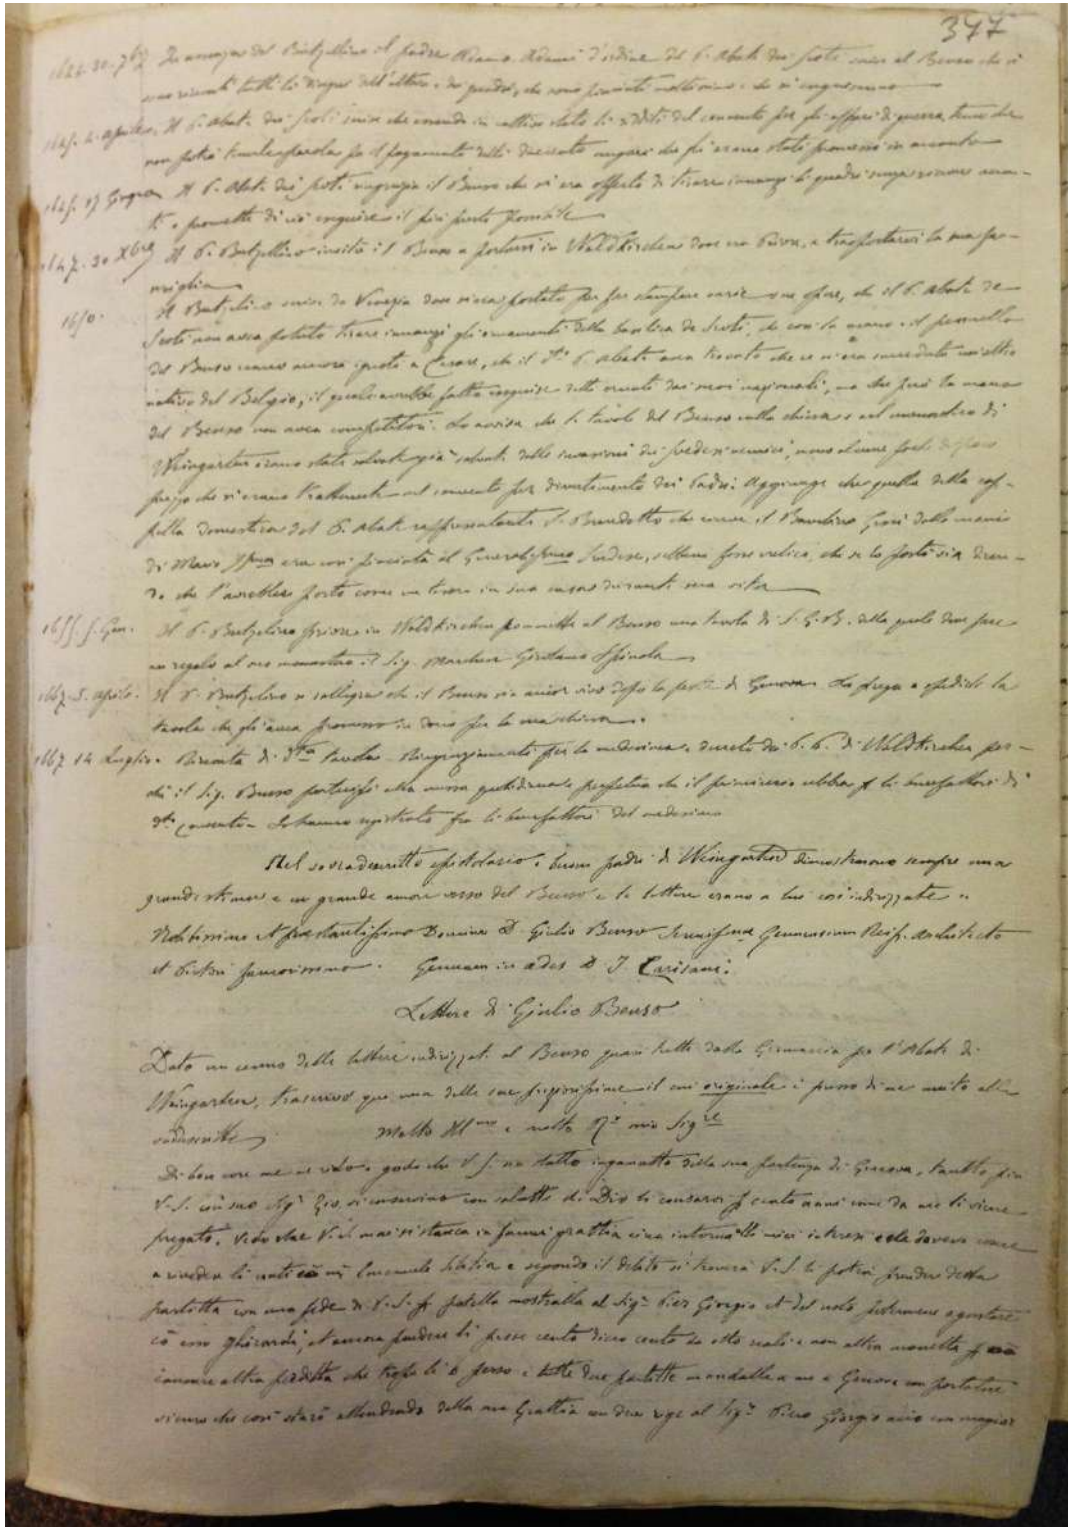 377
1644. 30. 7bre In assenza del Butzellino il padre Adamo Adami d'ordine del P. Abate dei Scoti scrive al Benso che si
sono ricevuti tutti li disegni dell'altare e dei quadri, che sono piaciuti moltissimo e che si eseguiranno
1645. 4. aprile. Il P. Abate dei Scoti scrive che essendo in cattivo stato li redditi del convento per gli affari di guerra, teme che
non potrà mantenere parola per il pagamento delli duecento ungari che gli erano stati promessi in acconto
1645. 17 Giugno Il P. Abate dei Scoti ringrazia il Benso che si era offerto di tirare innanzi li quadri senza
e promette di ciò eseguire il più presto possibile
1647. 30 Xbre Il P. Butzellino invita il Benso a portarsi in Waldkirchen dove era Priore, e trasportarvi la sua fa-
miglia
1650. Il Butzelino scrive da Venezia dove si era portato per far stampare varie sue opere, che il P. Abate de
Scoti non avea potuto tirare innanzi gli ornamenti della basilica de Scoti, che così la mano e il pennello
del Benso erano ancora ignoti a Cesare, che il do. P. Abate avea trovato che ce n'era un altro
nativo del Belgio, il quale avrebbe fatto eseguire detti ornati dai suoi nazionali, ma che però la mano
del Benso non avea competitori. Lo avvisa che le tavole del Benso nella chiesa e nel monastero di
Weingarten erano state salvate dalle invasioni dei svedesi nemici, meno alcune
prezzo che si erano trattenute nel convento per divertimento dei Padri. Aggiunge che quella della cap-
pella domestica del P. Abate rappresentante S. Benedetto che riceve il Bambino Gesù dalle mani
di Maria SSma era così piaciuta al Generalissimo svedese, sebbene fosse eretico, che se la portò via dicen-
do che l'avrebbe posta come un tesoro in sua casa durante sua vita
1655. 5. Gen. Il P. Butzelino priore in Waldkirchen permette al Benso una tavola di S. G. B. della quale deve fare
un regalo al suo monastero il Sig. Marchese Girolamo Spinola
1667. 5. aprile. Il P. Butzelino si rallegra che il Benso sia ancor vivo dopo la peste di Genova. Lo prega a spedirle la
tavola che gli avea promesso in dono per la sua chiesa.
1667 14 Luglio. Ricevuta di da. tavola. Ringraziamenti per la medesima e decreto dei P. P. di Waldkirchen per-
chè il Sig. Benso partecipi alla messa quotidiana perpetua che il principio ebbe per li benefattori di
do. convento. Lo hanno registrato fra li benefattori del medesimo
Nel sovradescritto epistolario i buoni padri di Weingarten dimostrarono sempre una
grande stima e un grande amore verso del Benso e le lettere erano a lui così indirizzate =
Nobilissimo et prestantissimo Domino D. Giulio Benso Serenissimae Genuensium Reip. Architecto
et Pictori famosissimo. Genuam in aedes D. J. Carisani.
Lettere di Giulio Benso
Dato un cenno delle lettere indirizzate al Benso quasi tutte dalla Germania per l'Abate di
Weingarten, trascrivo qui una delle sue il cui originale è presso di me unito alle
suddescritte
Molto Illmo e molto Rdo mio Sigre
Di bon core me ne rido e godo che V. S. sia statto ingannatto della sua partenza di Genova, tantto più
V. S. con suo Sigr Gio. si conservino con salutte che Dio li conservi per cento anni come da me li viene
pregato. Vedo che V. S. mai si stanca in farmi grattia circa intorno alli miei interessi e che dovevo
a rivedere li conti con Emanuele e segondo il debito si troverà V. S. li potrà prendere detta
partitta con una fede di V. S. per potella mostralla al Sigr Pier Giorgio et del resto potremmo agiostare
cō esso Ghirardi, et ancora prendere li pezze cento dieco cento da otto reali e non altra monetta per
causare altra perdita che troppo le ò perso e tutte due partitte mandalle a me a Genova con portatore
sicuro che così starò attendendo della sua Grattia con due righe al Sigr Piero Giorgio acciò con magior